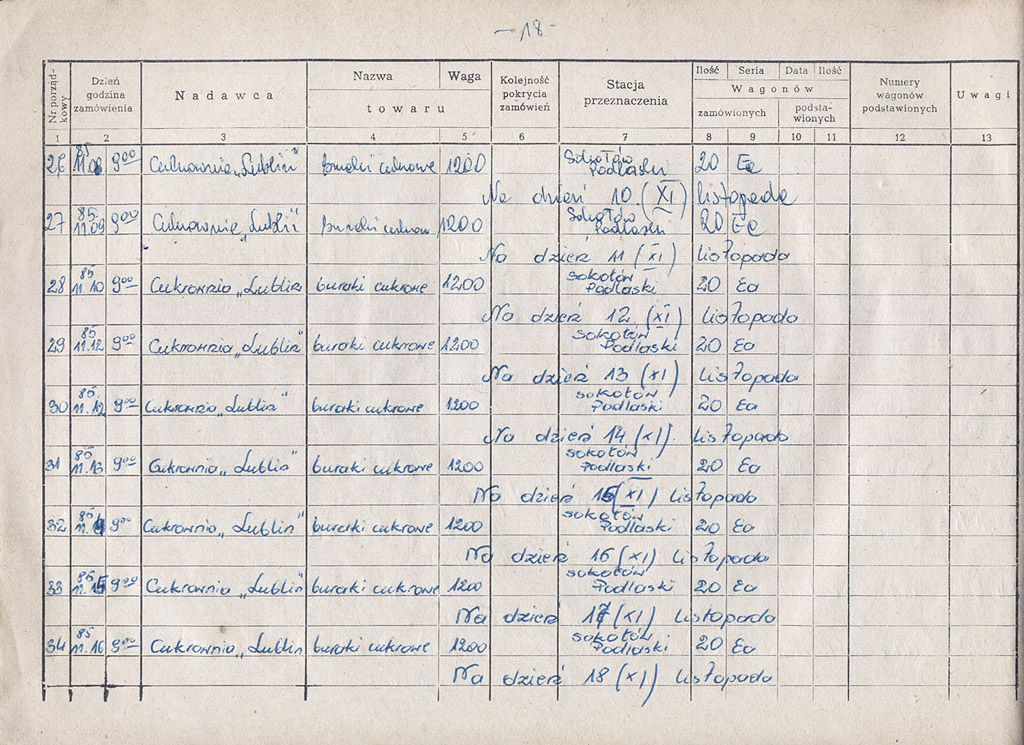 - 18 -
Nr porząd-kowy Dzień godzina zamówienia Nadawca Nazwa towaru Waga Kolejność pokrycia zamówień Stacja przeznaczenia Ilość Seria Wagonów zamówionych Data Ilość podsta-wionych Numery wagonów podstawionych Uwagi
1 2 3 4 5 6 7 8 9 10 11 12 13
26 85 11.08 9⁰⁰ Cukrownia „Lublin” buraki cukrowe 1200 Sokołów Podlaski 20 Ea
Na dzień 10. (XI) listopada
27 85. 11.09 9⁰⁰ Cukrownia „Lublin” buraki cukrow 1200 Sokołów Podlaski 20 Ea
Na dzień 11 (XI) listopada
28 85 11.10 9⁰⁰ Cukrownia „Lublin buraki cukrowe 1200 Sokołów Podlaski 20 Ea
Na dzień 12. (XI) listopada
29 85 11.12 9⁰⁰ Cukrownia „Lublin” buraki cukrowe 1200 Sokołów Podlaski 20 Ea
Na dzień 13 (XI) listopada
30 85 11.12 9⁰⁰ Cukrownia „Lublin” buraki cukrowe 1200 Sokołów Podlaski 20 Ea
Na dzień 14 (XI). listopada
31 85 11.13 9⁰⁰ Cukrownia „Lublin” buraki cukrowe 1200 Sokołów Podlaski 20 Ea
Na dzień 15 (XI) listopada
32 85 9⁰⁰ Cukrownia „Lublin” buraki cukrowe 1200 Sokołów Podlaski 20 Ea
Na dzień 16 (XI) listopada
33 85 11.15 9⁰⁰ Cukrownia „Lublin” buraki cukrowe 1200 Sokołów Podlaski 20 Ea
Na dzień 17 (XI) listopada
34 85 11.16 9⁰⁰ Cukrownia „Lublin buraki cukrowe 1200 Sokołów Podlaski 20 Ea
Na dzień 18 (XI) listopada